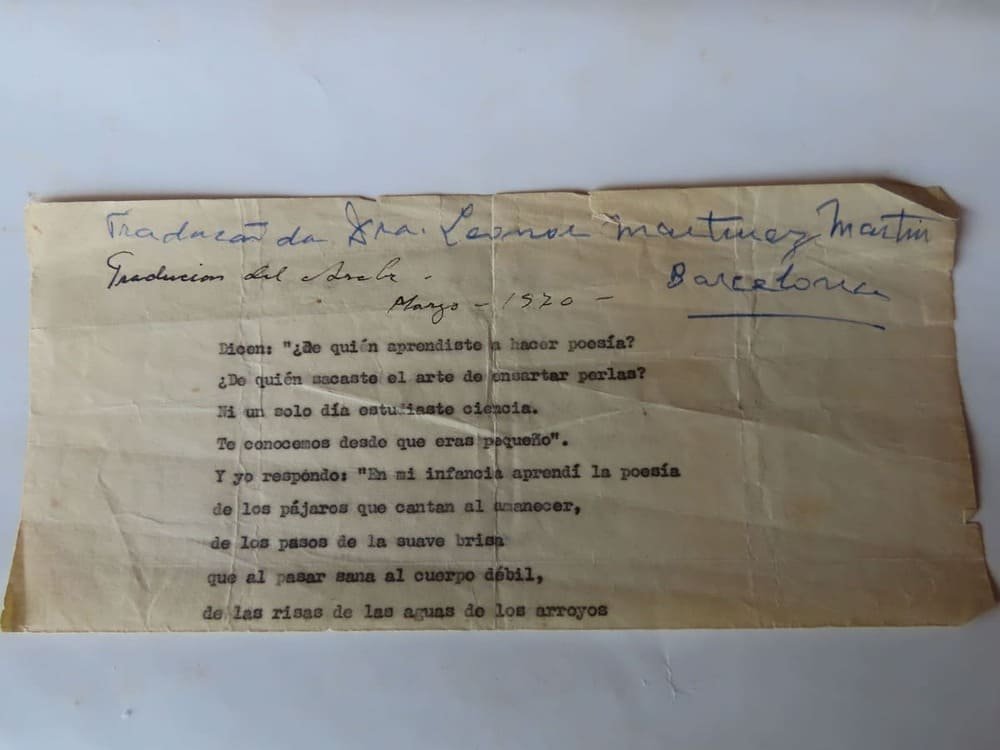 Tradução da Dra. Leonor Martinez Martin
Barcelona
Traducion del Arabe -
Marzo - 1970 -
Dicen: "¿De quién aprendiste a hacer poesía?
¿De quién sacaste el arte de ensartar perlas?
Ni un solo día estudiaste ciencia.
Te conocemos desde que eras pequeño".
Y yo respóndo: "En mi infancia aprendí la poesía
de los pájaros que cantan al amanecer,
de los pasos de la suave brisa
que al pasar sana al cuerpo débil,
de las risas de las aguas de los arroyos